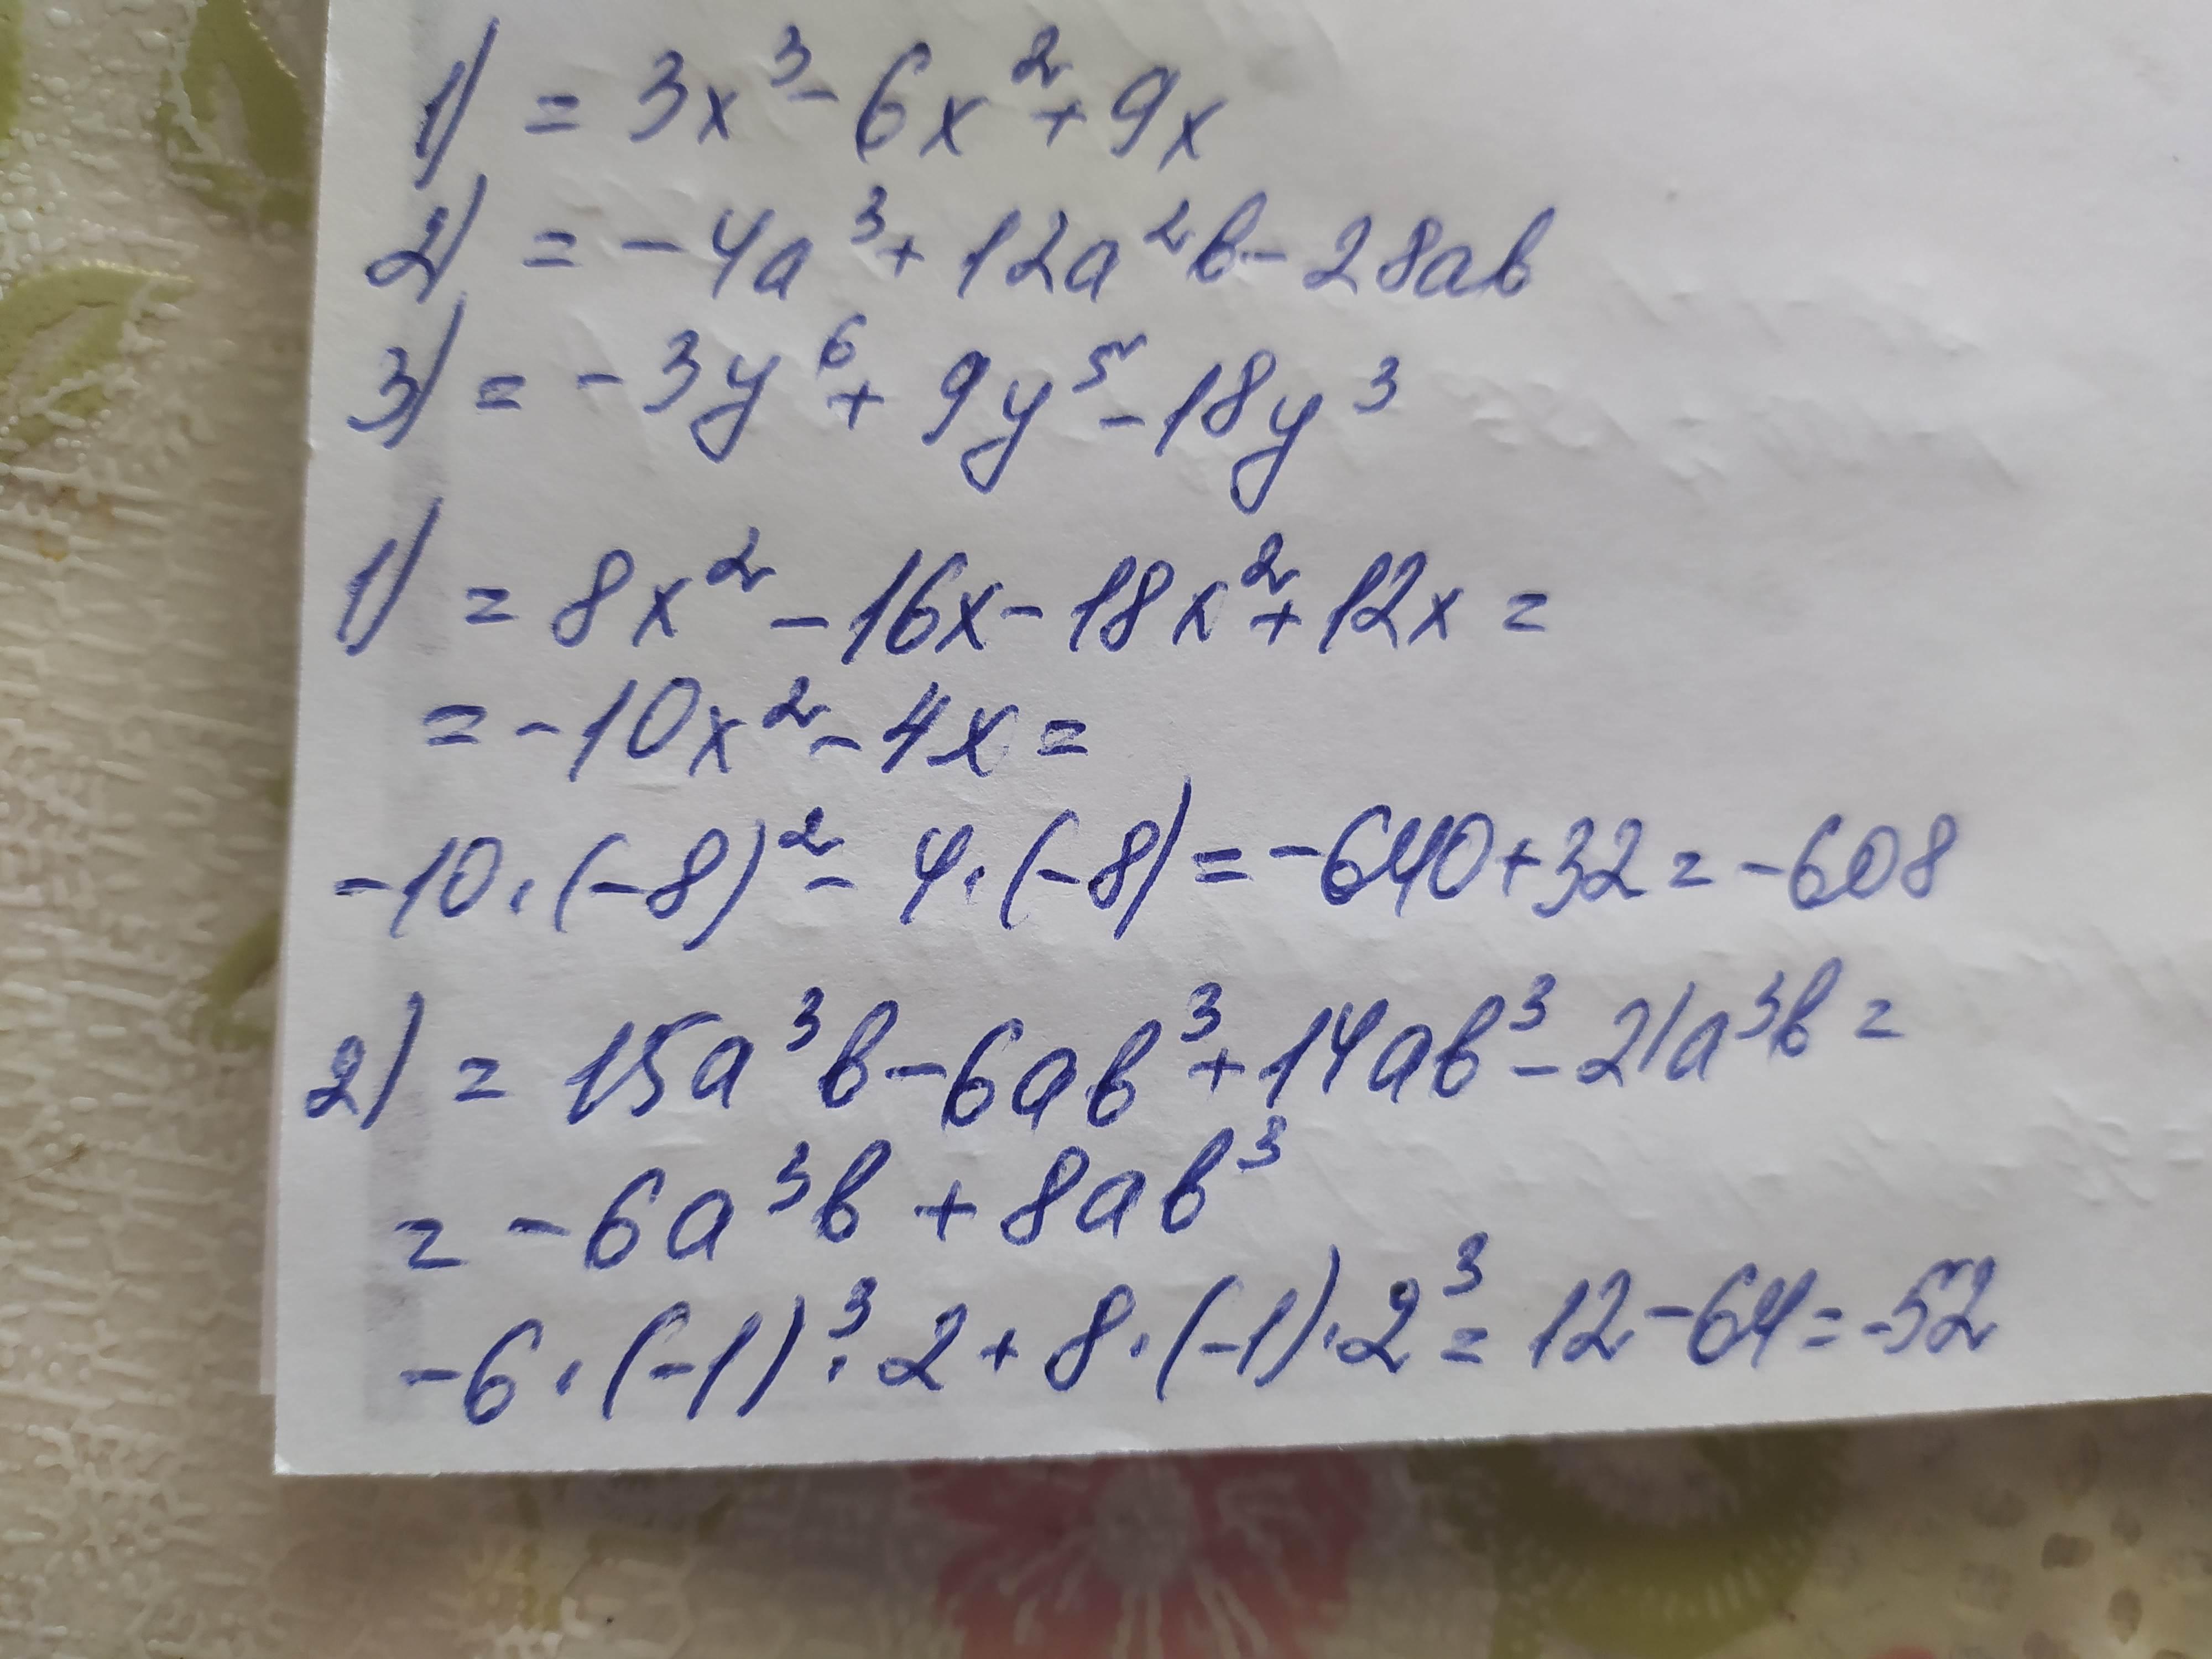 1) = 3x³ - 6x² + 9x
2) = -4a³ + 12a²b - 28ab
3) = -3y⁶ + 9y⁵ - 18y³
1) = 8x² - 16x - 18x² + 12x =
= -10x² - 4x =
-10·(-8)² - 4·(-8) = -640 + 32 = -608
2) = 15a³b - 6ab³ + 14ab³ - 21a³b =
= -6a³b + 8ab³
-6·(-1)³·2 + 8·(-1)·2³ = 12 - 64 = -52